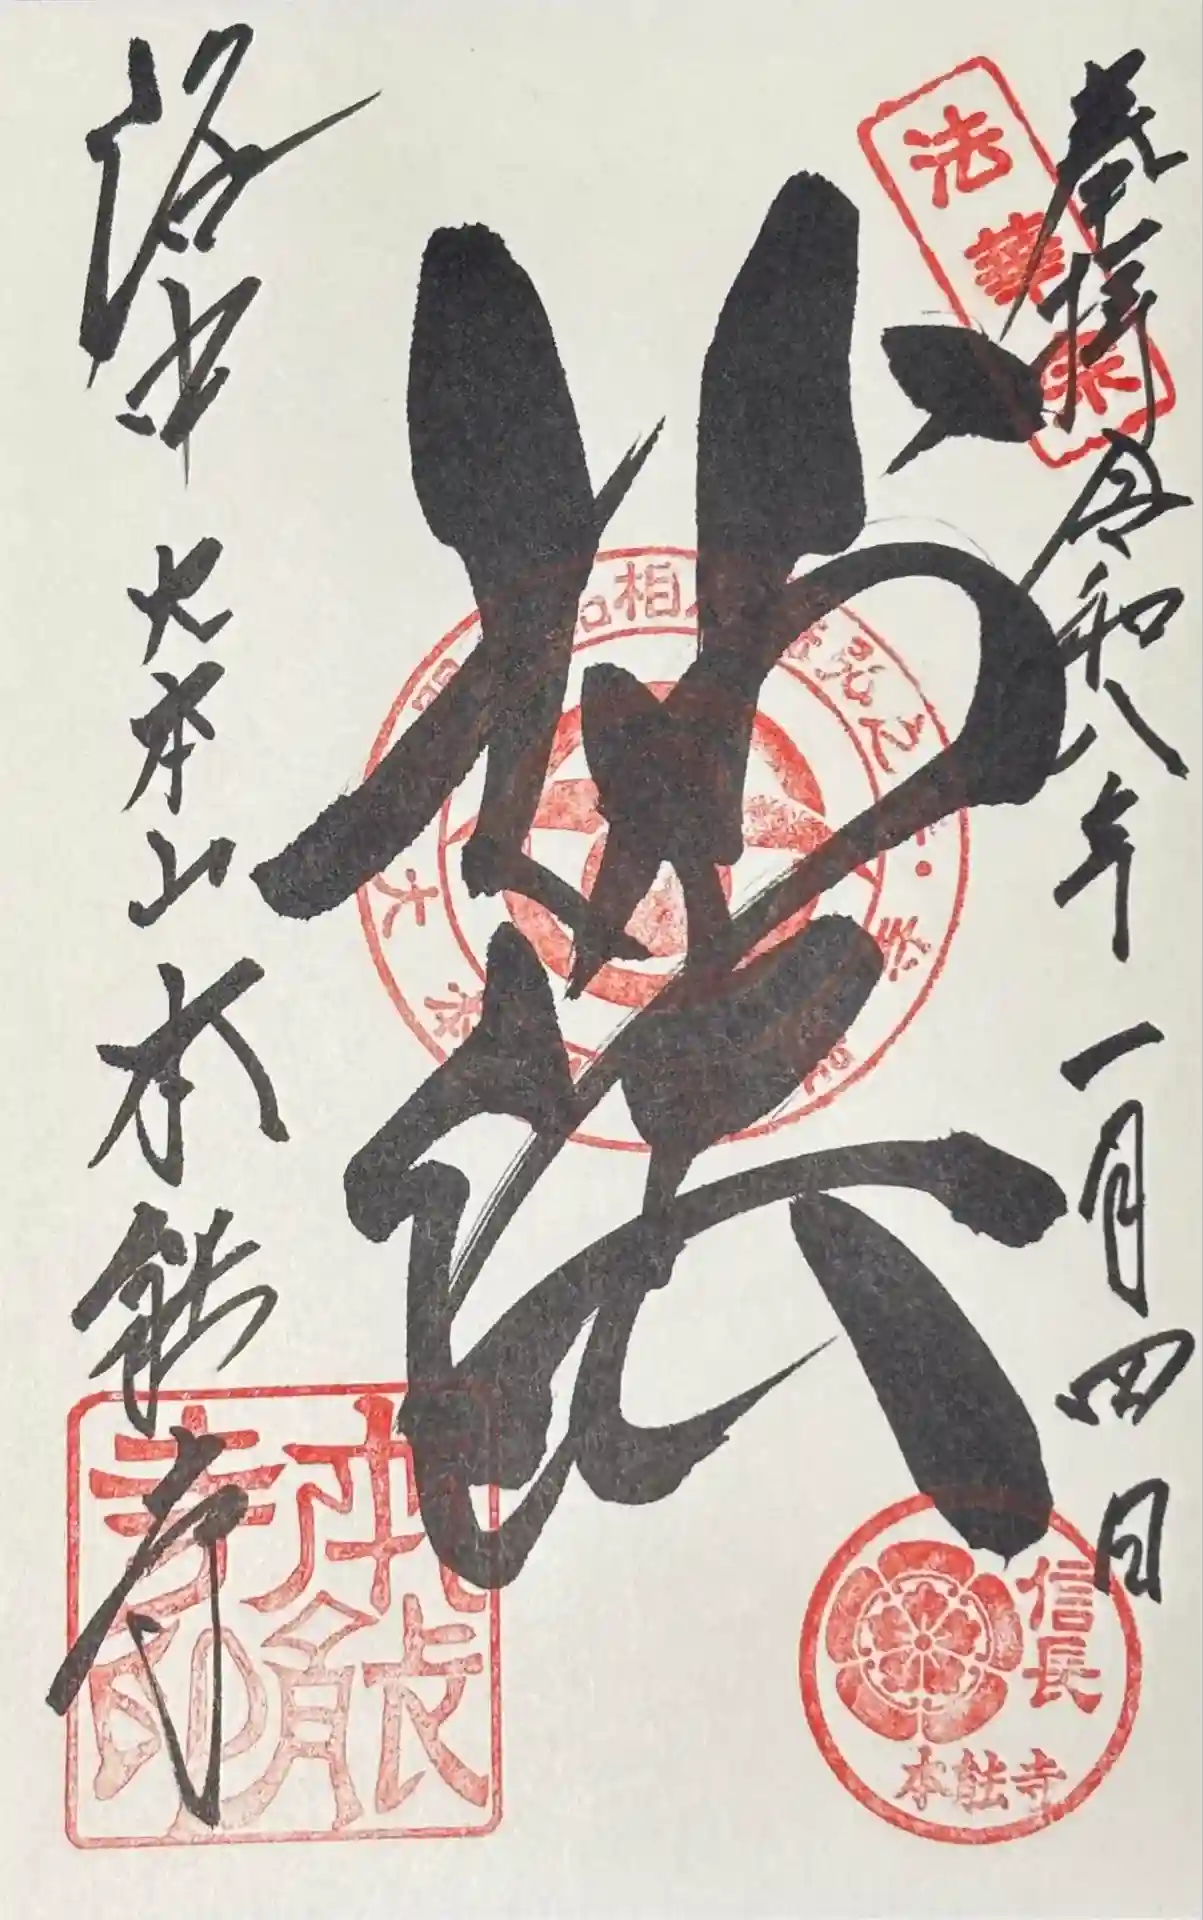 奉拝 令和八年 一月四日
法華宗
妙法
洛中 大本山 本能寺
本能寺印
信長
本能寺